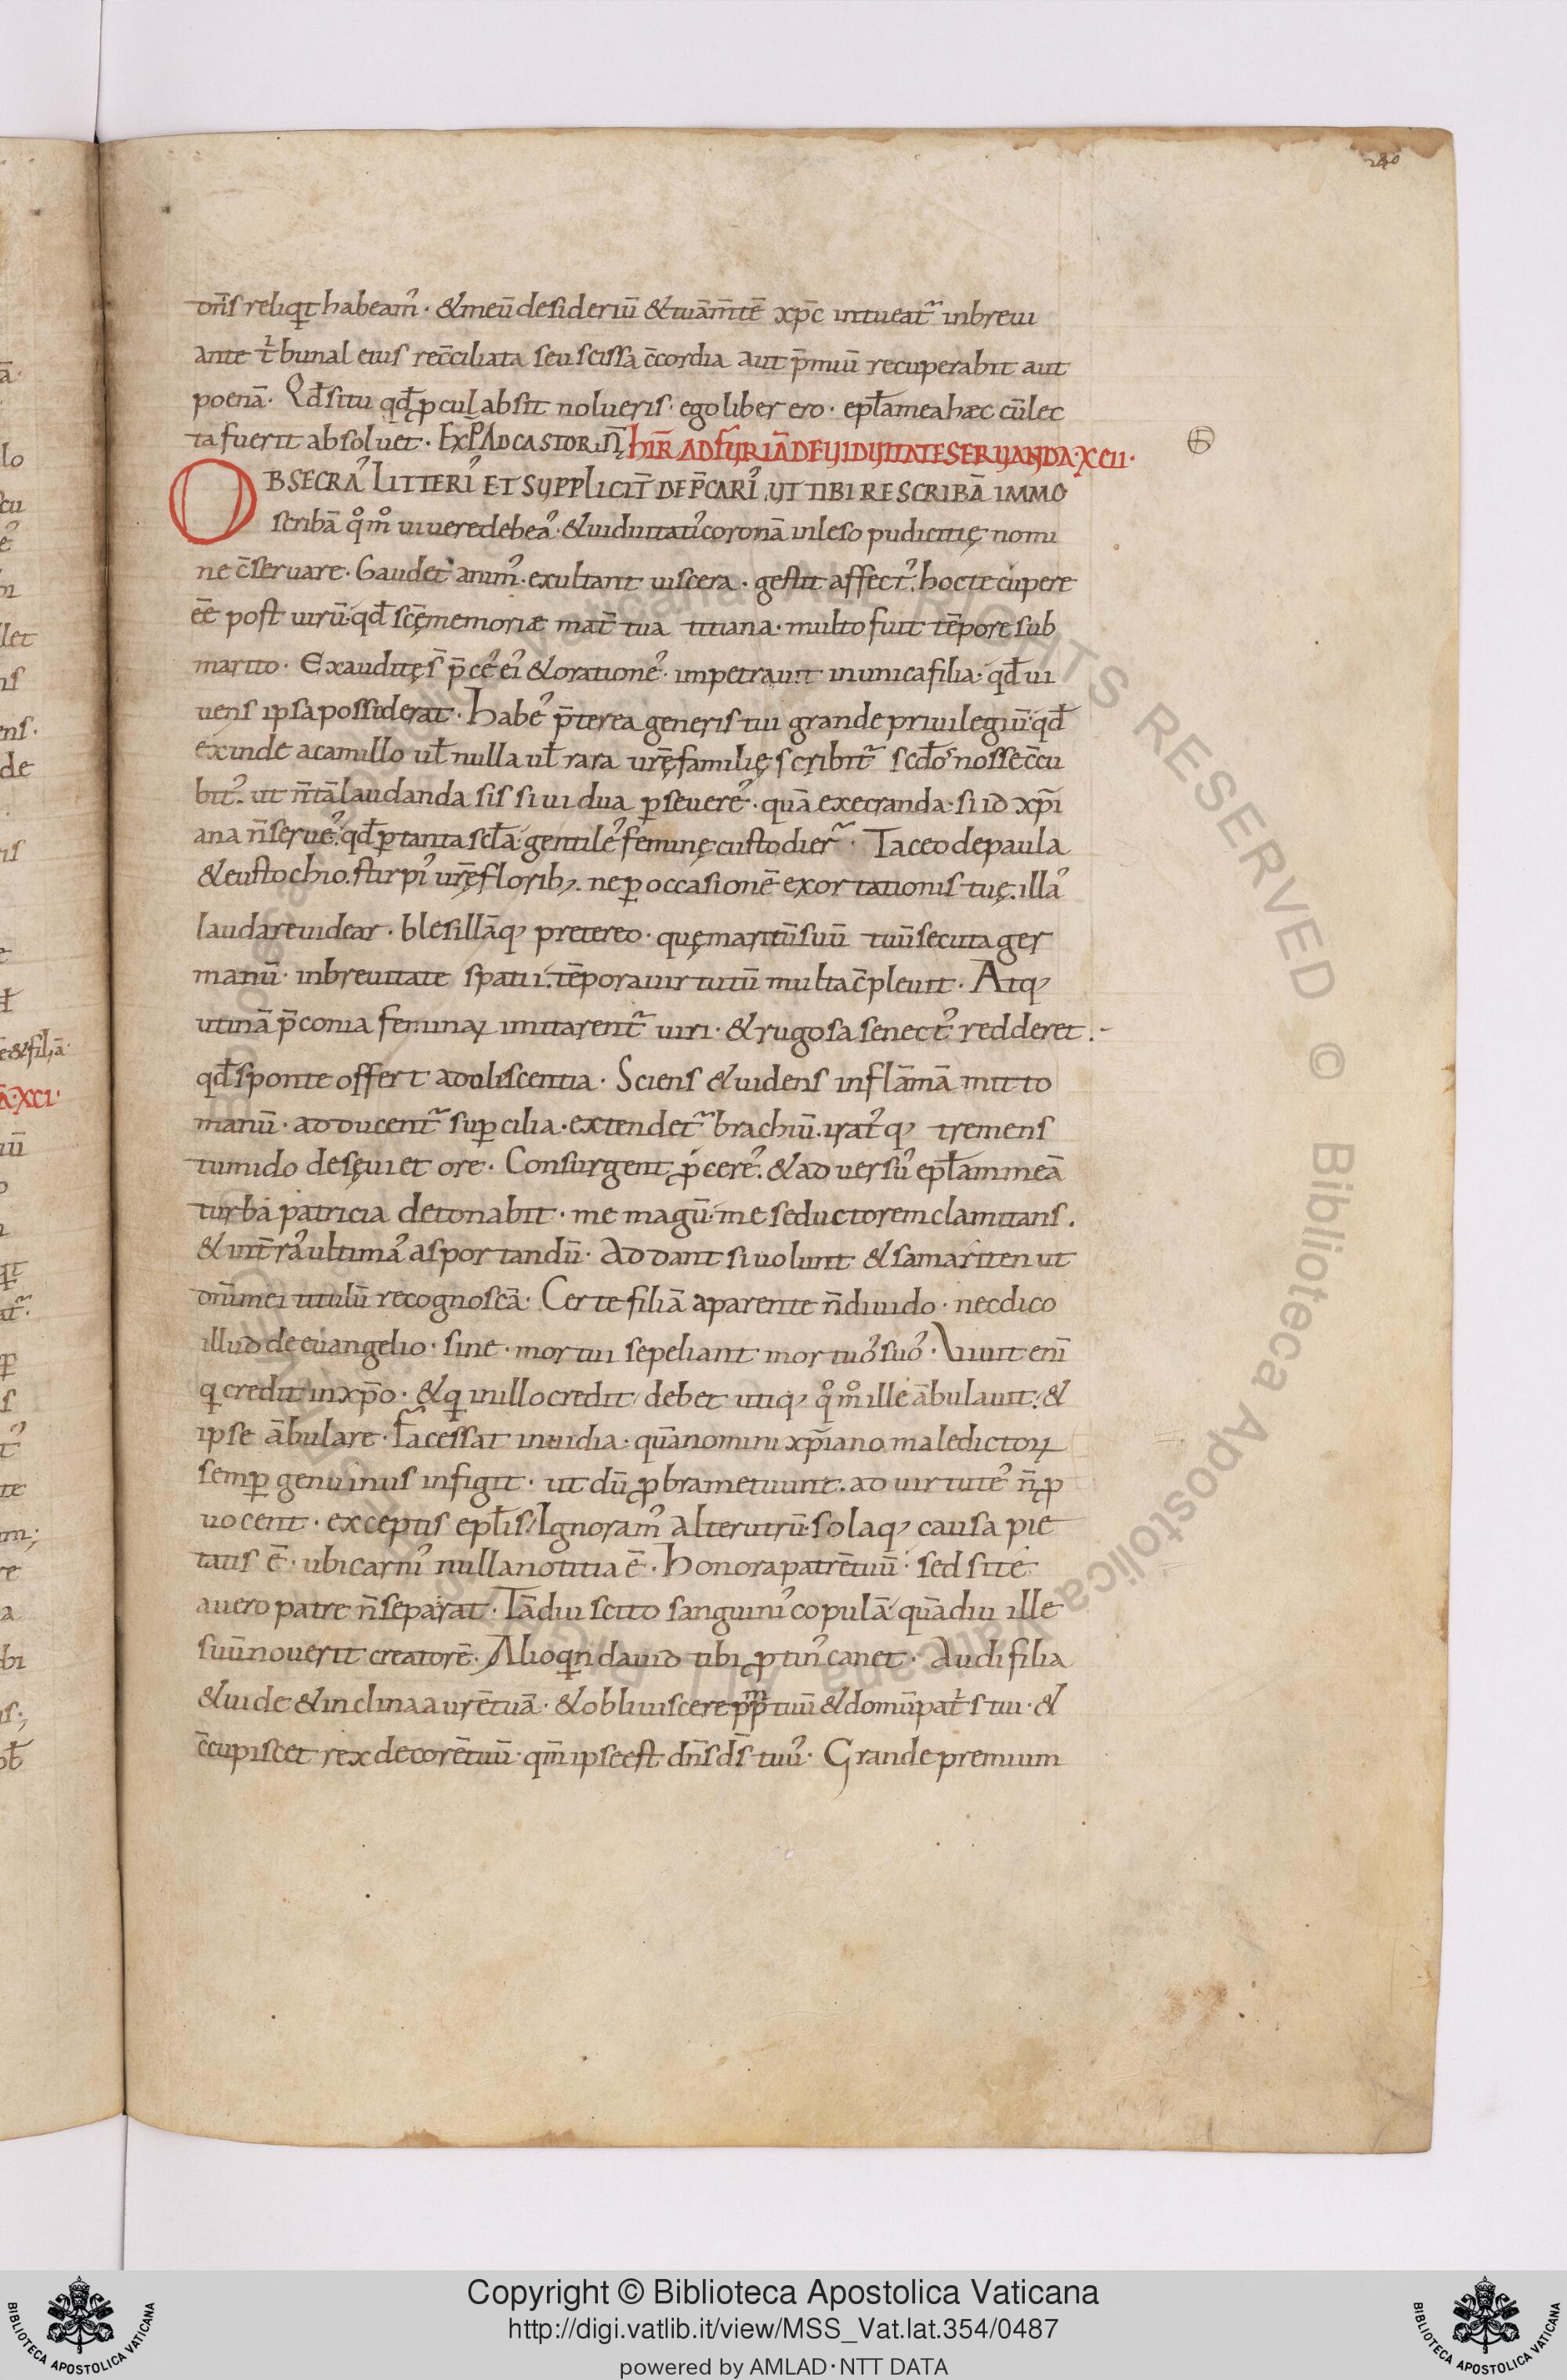 240
dn̄s reliq̇t habeamꝰ · & meū desideriū & tuā m̄tē xp̄c intueat᷑ inbreui
ante t̍bunal eius rec̄ciliata seu scissa c̄cordia aut p̄miū recuperabit aut
poenā · Qđ si tu qđ ꝓcul absit nolueris · ego liber ero · epła mea hæc cū lec
ta fuerit absoluet · EXP̄ AD CASTORIN̄ hIR̄ AD FURIĀ DE UIDUITATE SERUANDA · XCII ·
OBSECRAꝰ LITTERIꝰ ET SUPPLICIT̄ DEP̄CARIꝰ UT TIBI RESCRIBĀ IMMO
scribā qͦmͦ uiuere debeaꝰ · & uiduitatiꝰ coronā inleso pudicitię nomi
ne c̄seruare · Gaudet animꝰ · exultant uiscera · gestit affectꝰ · hoc te cupere
eē post uirū · qđ scę̄ memoriæ mat̄ tua titiana · multo fuit tēpore sub
marito · Exauditę s̄ p̄ceꝰ eiꝰ & orationeꝰ · impetrauit inunica filia · qđ ui
uens ipsa possiderat · Habeꝰ p̄terea generis tui grande priuilegiū · qđ
exinde a camillo uł nulla uł rara ur̄ę familię scribit᷑ scđoꝰ nosse c̄cu
bitꝰ · ut n̄ tā laudanda sis si uidua ꝑseuereꝰ · quā execranda · si id xp̄i
ana n̄ serueꝰ · qđ ꝑ tanta scł̄a · gentileꝰ feminę custodier᷑ · Taceo de paula
& eustochio · stirpiꝰ ur̄ę floribꝫ · ne ꝑ occasionē exortationis tuę · illaꝰ
laudare uidear · blesillāq; pretereo · quę maritū suū tuū secuta ger
manū · inbreuitate spatii · tēpora uirtutū multa c̄pleuit · Atq;
utinā p̄conia feminaꝝ imitarent᷑ uiri · & rugosa senectꝰ redderet · -
qđ sponte offert adolescentia · Sciens & uidens inflāmā mitto
manū · adducent᷑ suꝑcilia · extendet᷑ brachiū · iratꝰq; tremens
tumido desęuiet ore · Consurgent ꝓcereꝰ · & aduersūꝰ epłam meā
turba patricia detonabit · me magū · me seductorem clamitans ·
& int̄ raꝰ ultimaꝰ asportandū · Addant si uolunt & samariten ut
dn̄i mei titulū recognoscā · Certe filiā a parente n̄ diuido · nec dico
illud de euangelio · sine · mortui sepeliant mortuoꝰ suoꝰ · Viuit enī
q̇ credit in xp̄o · & q̇ in illo credit debet utiq; qͦmͦ ille ābulauit · &
ipse ābulare · Facessat inuidia · quā nomini xp̄iano maledictoꝝ
semꝑ genuinus infigit · ut dū ꝓbra metuunt · ad uirtuteꝰ n̄ ꝓ
uocent · exceptis epłis · Ignoramꝰ alterutrū · solaq; causa pie
tatis ē · ubi carniꝰ nulla notitia ē · Honora patrē tuū · sed si te
a uero patre n̄ separat · Tādiu scito sanguiniꝰ copulā quādiu ille
suū nouerit creatorē · Alioq̇n dauid tibi ꝓtinꝰ canet · Audi filia
& uide & inclina aurē tuā · & obliuiscere pp̄m tuū & domū pat̍s tui · &
c̄cupiscet rex decorē tuū · qm̄ ipse est dn̄s ds̄ tuuꝰ · Grande premium
Copyright © Biblioteca Apostolica Vaticana
http://digi.vatlib.it/view/MSS_Vat.lat.354/0487
powered by AMLAD·NTT DATA